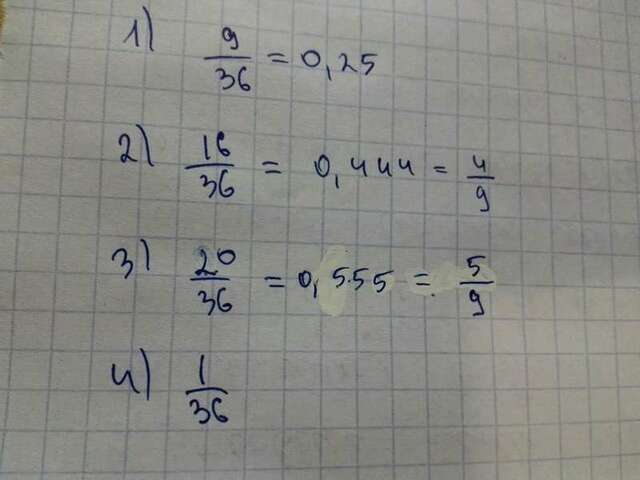 1) 9/36 = 0,25
2) 16/36 = 0,444 = 4/9
3) 20/36 = 0,555 = 5/9
4) 1/36